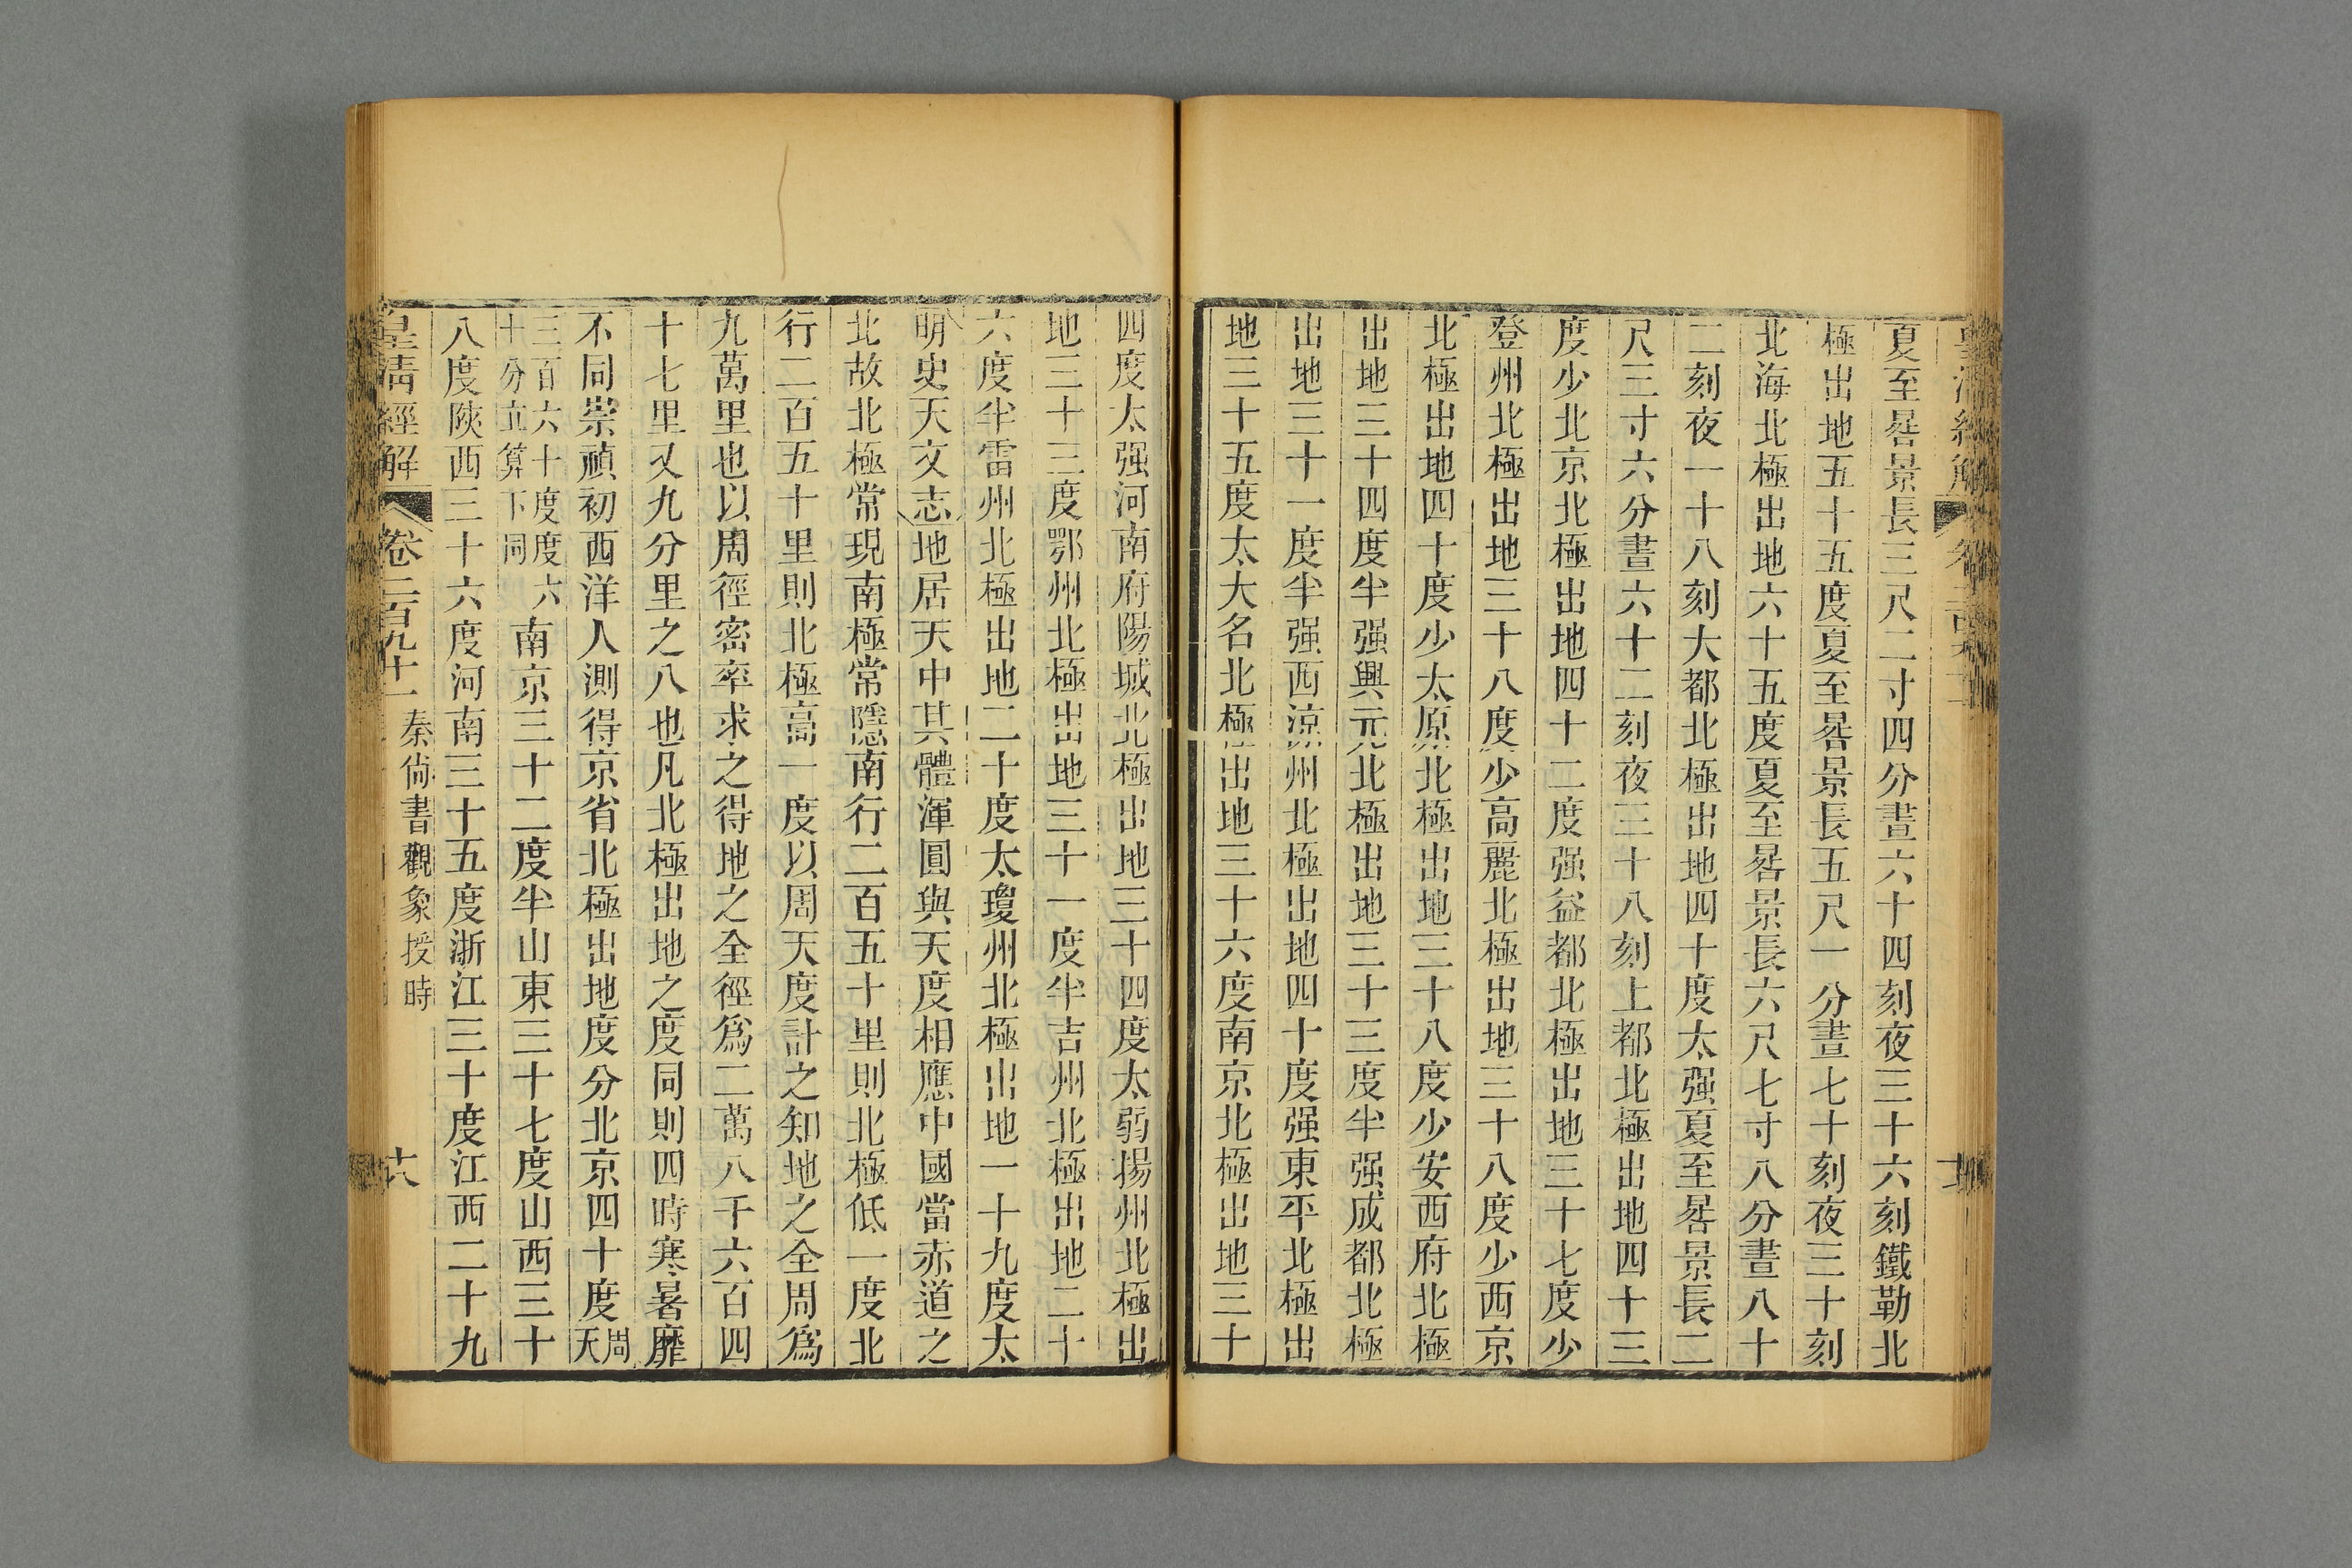 夏至晷景長三尺二寸四分晝六十四刻夜三十六刻鐵勒北
極出地五十五度夏至晷景長五尺一分晝七十刻夜三十刻
北海北極出地六十五度夏至晷景長六尺七寸八分晝八十
二刻夜一十八刻大都北極出地四十度太强夏至晷景長二
尺三寸六分晝六十二刻夜三十八刻上都北極出地四十三
度少北京北極出地四十二度强益都北極出地三十七度少
登州北極出地三十八度少高麗北極出地三十八度少西京
北極出地四十度少太原北極出地三十八度少安西府北極
出地三十四度半强興元北極出地三十三度半强成都北極
出地三十一度半强西涼州北極出地四十度强東平北極出
地三十五度太大名北極出地三十六度南京北極出地三十
四度太强河南府陽城北極出地三十四度太弱揚州北極出
地三十三度鄂州北極出地三十一度半吉州北極出地二十
六度半雷州北極出地二十度太瓊州北極出地一十九度太
明史天文志地居天中其體渾圓與天度相應中國當赤道之
北故北極常現南極常隱南行二百五十里則北極低一度北
行二百五十里則北極高一度以周天度計之知地之全周爲
九萬里也以周徑密率求之得地之全徑爲二萬八千六百四
十七里又九分里之八也凡北極出地之度同則四時寒暑靡
不同崇禎初西洋人測得京省北極出地度分北京四十度周天
三百六十度度六十分立算下同南京三十二度半山東三十七度山西三十
八度陝西三十六度河南三十五度浙江三十度江西二十九
皇清經解 卷二百九十一 秦尙書觀象授時 十六